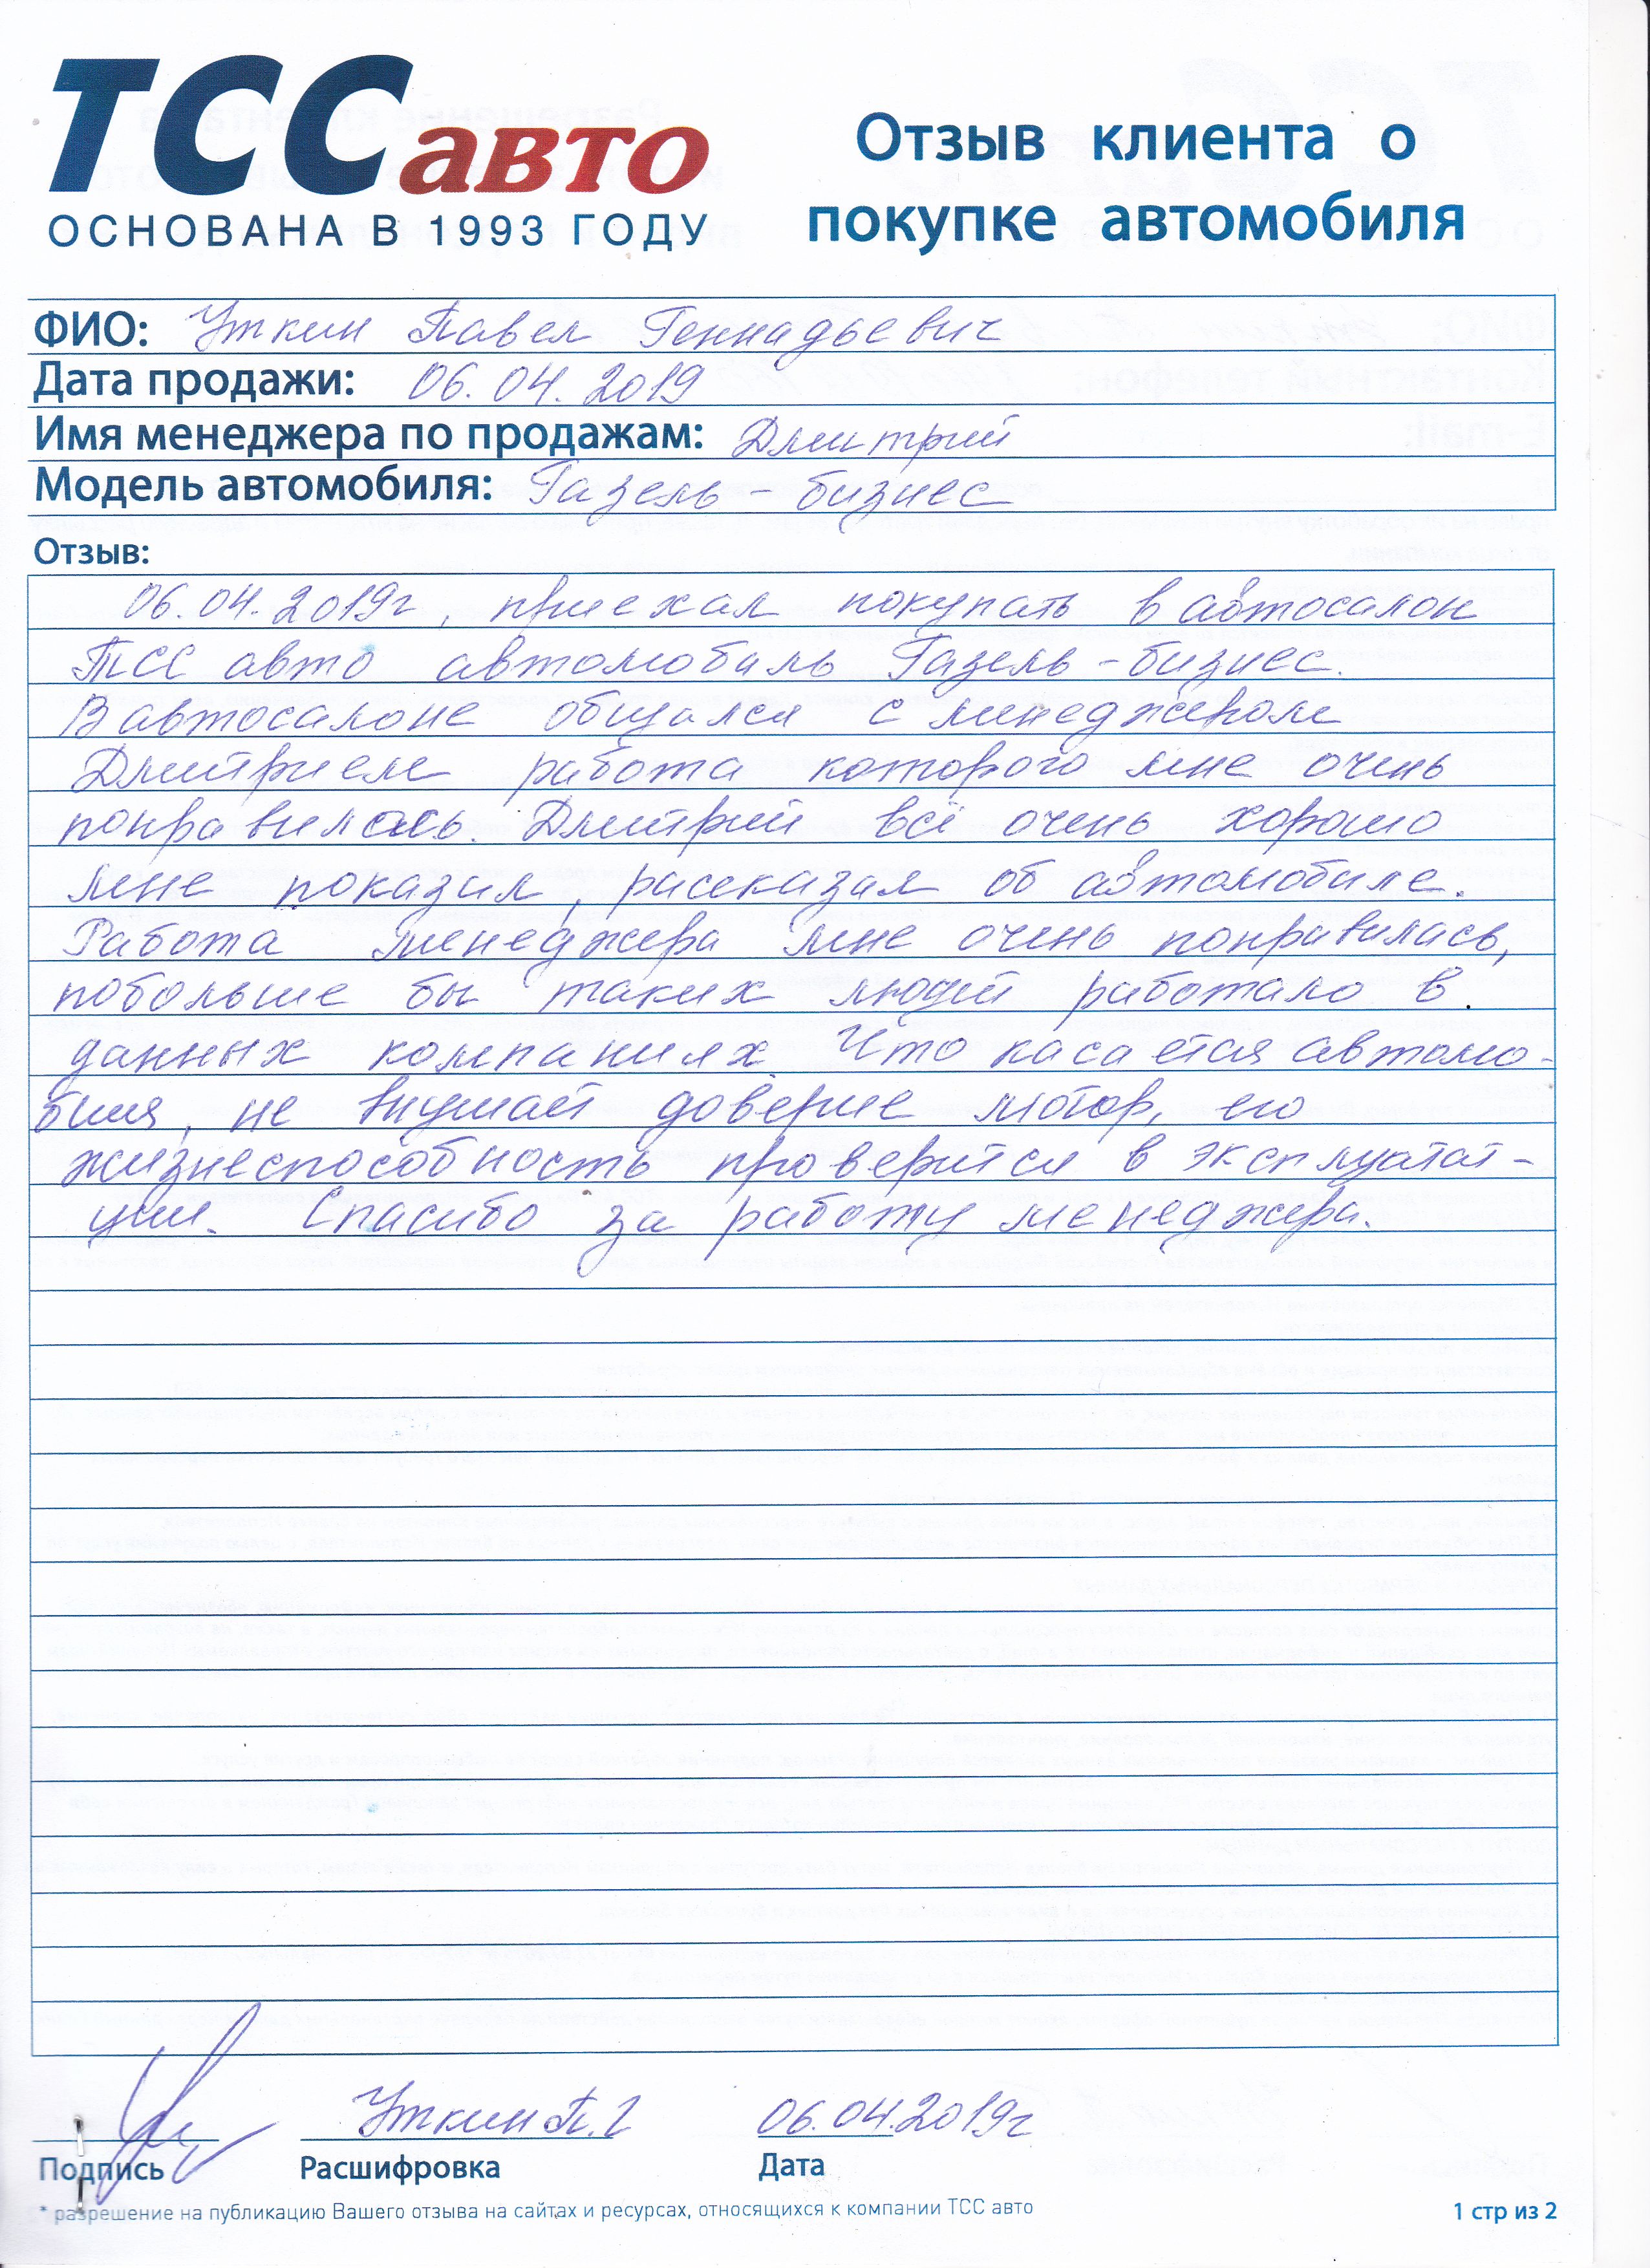 ТССавто
ОСНОВАНА В 1993 ГОДУ
Отзыв клиента о
покупке автомобиля
ФИО: Уткин Павел Геннадьевич
Дата продажи: 06.04.2019
Имя менеджера по продажам: Дмитрий
Модель автомобиля: Газель-бизнес
Отзыв:
06.04.2019г, приехал покупать в автосалон
ТСС авто автомобиль Газель-бизнес.
В автосалоне общался с менеджером
Дмитрием работа которого мне очень
понравилась. Дмитрий всё очень хорошо
мне показал, рассказал об автомобиле.
Работа менеджера мне очень понравилась,
побольше бы таких людей работало в
данных компаниях. Что касается автомо-
биля, не внушает доверие мотор, его
жизнеспособность проверится в эксплуатат-
ции. Спасибо за работу менеджера.
Уткин П.Г 06.04.2019г
Подпись Расшифровка Дата
* разрешение на публикацию Вашего отзыва на сайтах и ресурсах, относящихся к компании ТСС авто
1 стр из 2